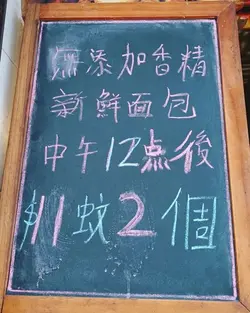 無添加香精
新鮮面包
中午12点後
$11蚊2個